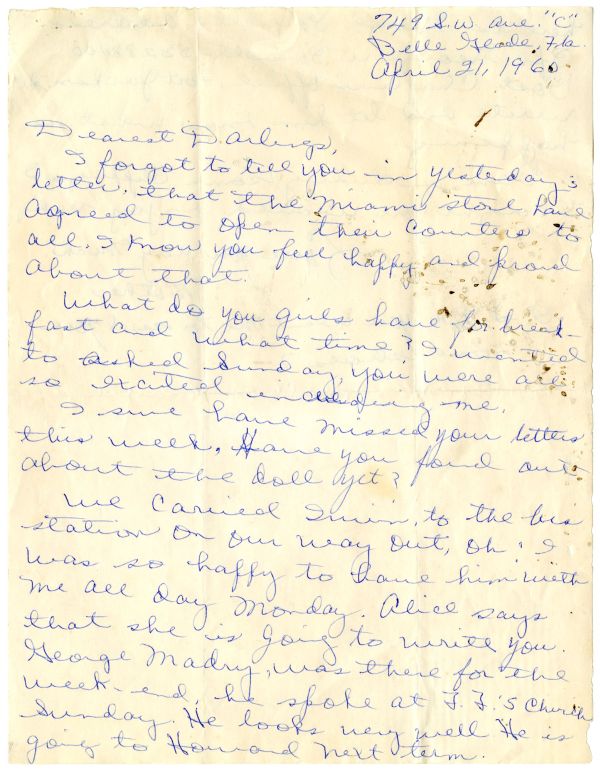 749 S.W. Ave. "C"
Belle Glade, Fla.
April 21, 1960
Dearest Darlings,
I forgot to tell you in yesterday's
letter, that the Miami store have
agreed to open their counters to
all. I know you feel happy and proud
about that.
What do you girls have for break-
fast and what time? I wanted
to asked Sunday, you were all
so excited including me.
I sure have missed your letters
this week. Have you found out
about the doll yet?
We carried Irwin, to the bus
station on our way out, Oh! I
was so happy to have him with
me all day Monday. Alice says
that she is going to write you.
George Madry, was there for the
week-end, he spoke at Church
Sunday. He looks very well. He is
going to Howard next term.